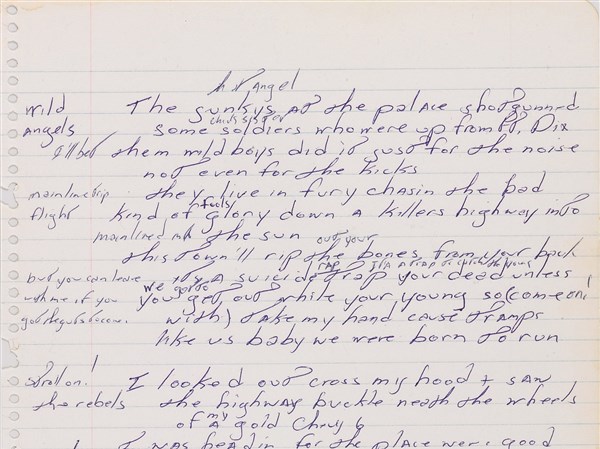 Angel
wild The gunkys at the palace shotgunned
Angels some soldiers who were up from Ft. Dix
I'll bet them wild boys did it just for the noise
not even for the kicks
mainline trip they live in fury chasin the bad
flight kind of fools glory down a killers highway into
mainlined the sun out your
this town'll rip the bones from your back
but you can leave its a suicide trap your dead unless
rap its a trap to catch the young
we gotta
with me if you you get out while your young so (come on
got the guts with) take my hand cause tramps
like us baby we were born to run
Stroll on! I looked out cross my hood + saw
the rebels the highway buckle neath the wheels
of my gold Chevy 6
I was headin for the place were good